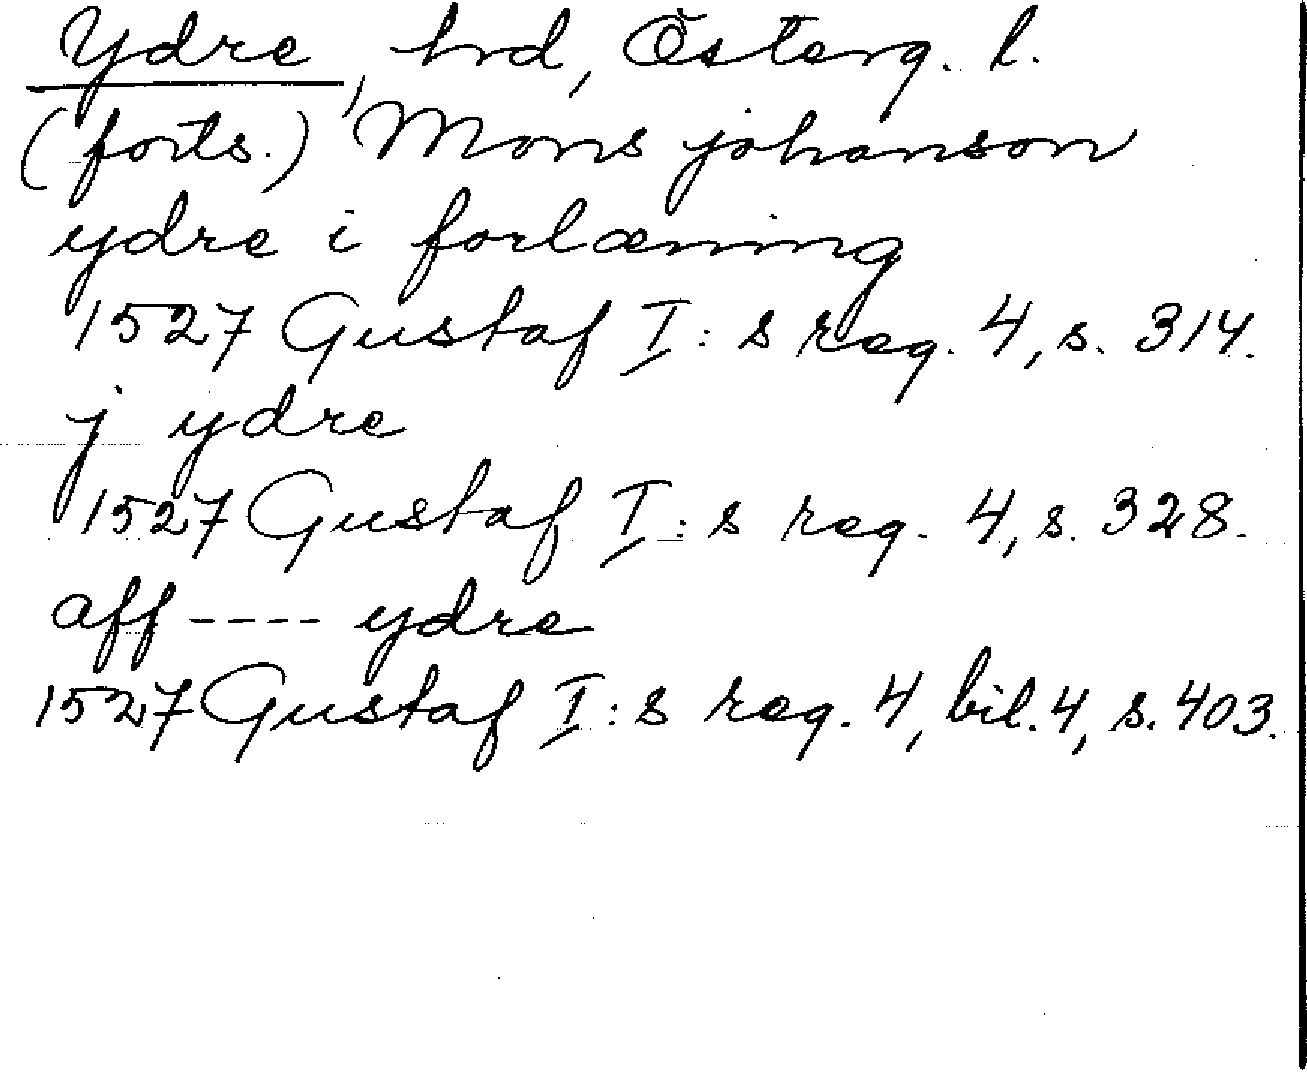 Ydre, hrd, Österg. l.
(forts.) Mons johanson
ydre i forlæning
1527 Gustaf I:s reg. 4, s. 314.
j ydre
1527 Gustaf I:s reg. 4, s. 328.
aff ---- ydre
1527 Gustaf I:s reg. 4, bil. 4, s. 403.